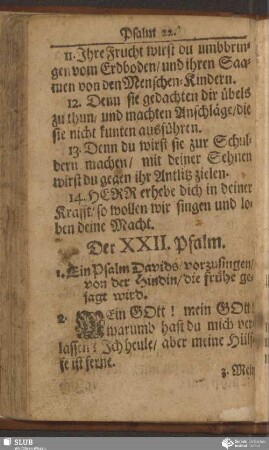 Psalm 22.
11. Ihre Frucht wirst du umbbrin-
gen vom Erdboden/ und ihren Saa-
men von den Menschen-Kindern.
12. Denn sie gedachten dir übels
zu thun/ und machten Anschläge/ die
sie nicht kunten außführen.
13. Denn du wirst sie zur Schul-
dern machen/ mit deiner Sehnen
wirst du gegen ihr Antlitz zielen.
14. HERR erhebe dich in deiner
Krafft/ so wollen wir singen und lo-
ben deine Macht.
Der XXII. Psalm.
1. Ein Psalm Davids/ vorzusingen/
von der Hindin/ die frühe ge-
jagt wird.
2. MEin GOtt! mein GOtt
warumb hast du mich ver-
lassen? Ich heule/ aber meine Hülf-
fe ist ferne.
3. Mein
SLUB